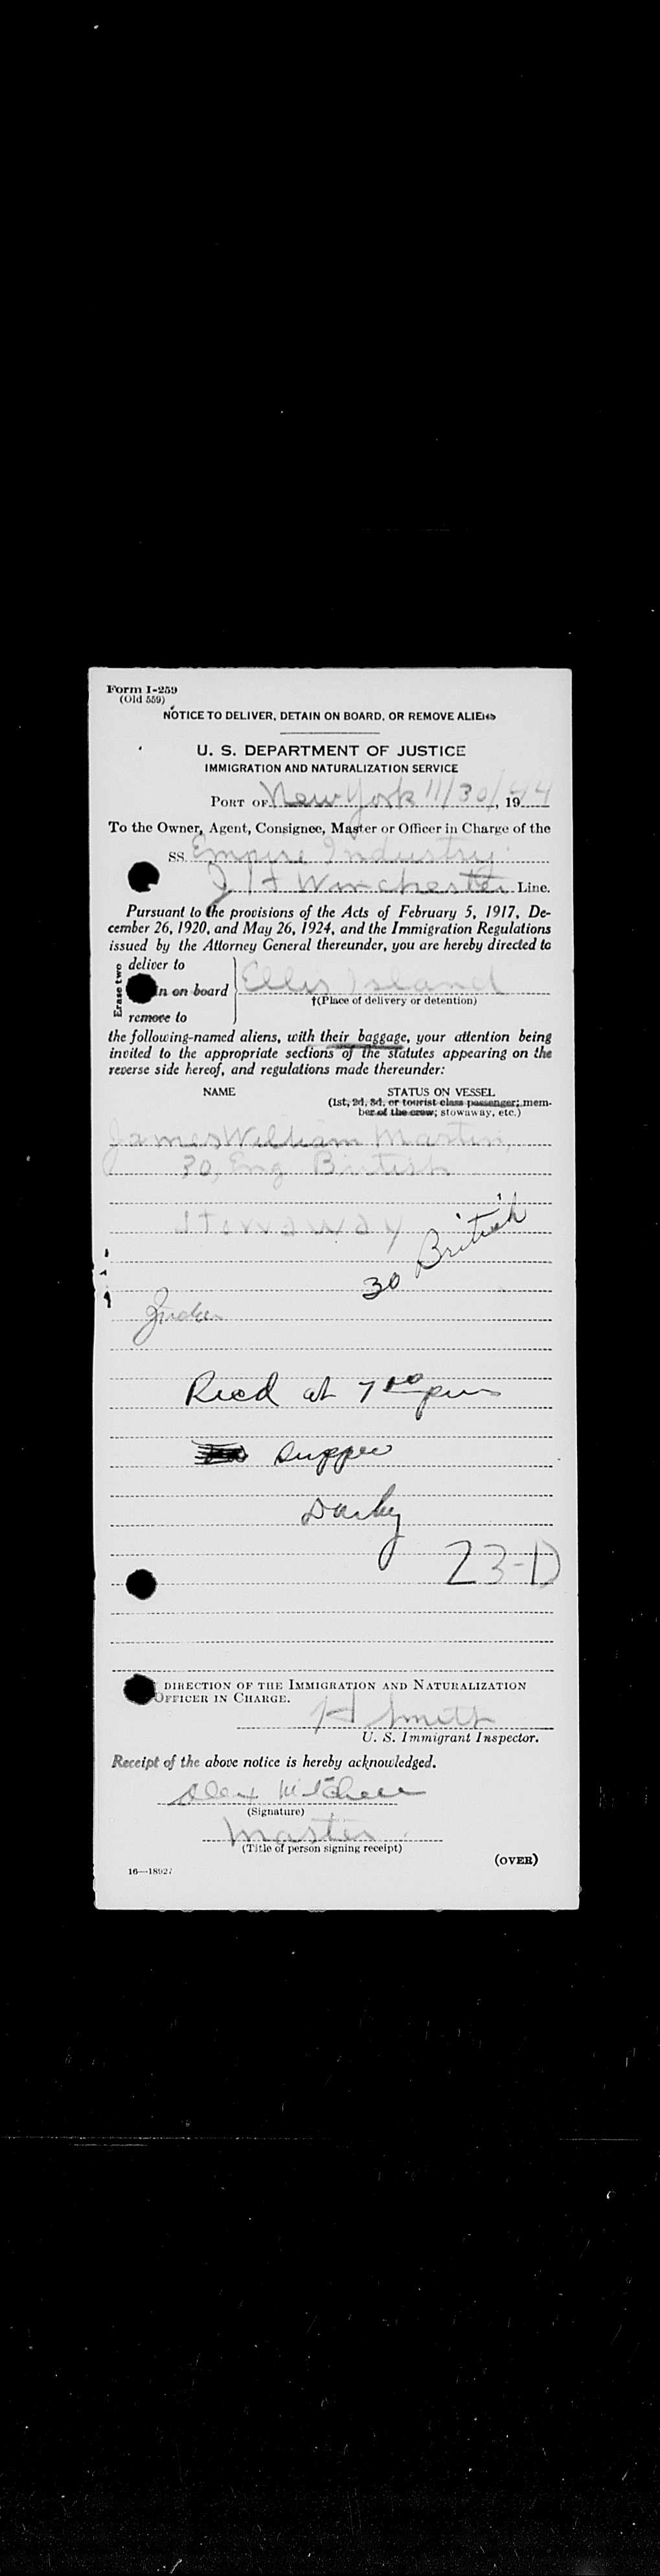 Form I-259
(Old 559)
NOTICE TO DELIVER, DETAIN ON BOARD, OR REMOVE ALIENS
U. S. DEPARTMENT OF JUSTICE
IMMIGRATION AND NATURALIZATION SERVICE
PORT OF New York 11/30/44, 19
To the Owner, Agent, Consignee, Master or Officer in Charge of the
SS. Empire Industry
J H Winchester Line.
Pursuant to the provisions of the Acts of February 5, 1917, De-
cember 26, 1920, and May 26, 1924, and the Immigration Regulations
issued by the Attorney General thereunder, you are hereby directed to
Erase two
deliver to
n on board
remove to
Ellis Island
†(Place of delivery or detention)
the following-named aliens, with their baggage, your attention being
invited to the appropriate sections of the statutes appearing on the
reverse side hereof, and regulations made thereunder:
NAME STATUS ON VESSEL
(1st, 2d, 3d, or tourist class passenger; mem-
ber of the crew; stowaway, etc.)
James William Martin,
30, Eng British
Stowaway
30 British
Recd at 7 00 pm
Supper
Darby
23-D
DIRECTION OF THE IMMIGRATION AND NATURALIZATION
OFFICER IN CHARGE.
H Smith
U. S. Immigrant Inspector.
Receipt of the above notice is hereby acknowledged.
Alex Mitchell
(Signature)
Master
(Title of person signing receipt)
(OVER)
16—18927